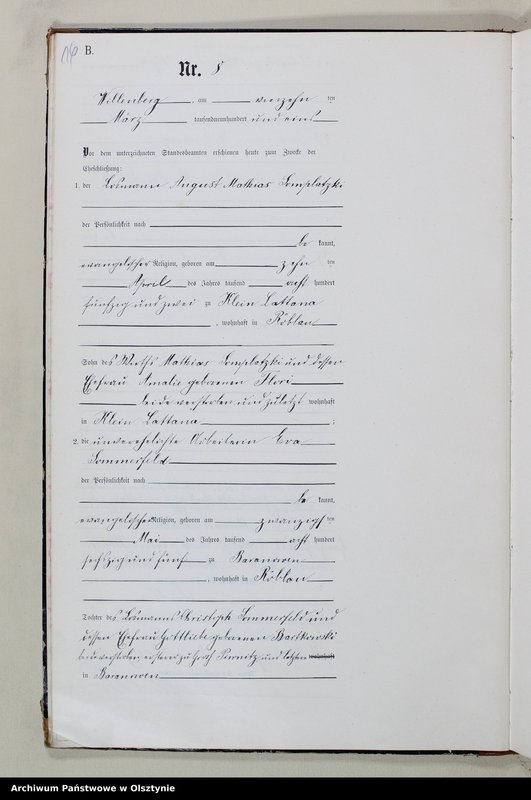 B.
Nr. 8
Willenberg, am vierzehn ten
März tausendneunhundert und eins
Vor dem unterzeichneten Standesbeamten erschienen heute zum Zwecke der
Eheschließung:
1. der Losmann August Mathias Somplatzki
der Persönlichkeit nach
be kannt,
evangelischer Religion, geboren am zehn ten
April des Jahres tausend acht hundert
fünfzig und zwei zu Klein Lattana
, wohnhaft in Röblau
Sohn des Wirths Mathias Somplatzki und dessen
Ehefrau Amalie geborenen Flori
beide verstorben und zuletzt wohnhaft
in Klein Lattana ;
2. die unverehelichte Arbeiterin Eva
Sommerfeld
der Persönlichkeit nach
be kannt,
evangelischer Religion, geboren am zwanzigs ten
Mai des Jahres tausend acht hundert
sechszig und fünf zu Baranowen
, wohnhaft in Röblau
Tochter des Losmanns Christoph Sommerfeld und
dessen Ehefrau Gottliebe geborenen Bartkowski
beide verstorben, ersterer zu und letztere wohnhaft
in Baranowen
Archiwum Państwowe w Olsztynie